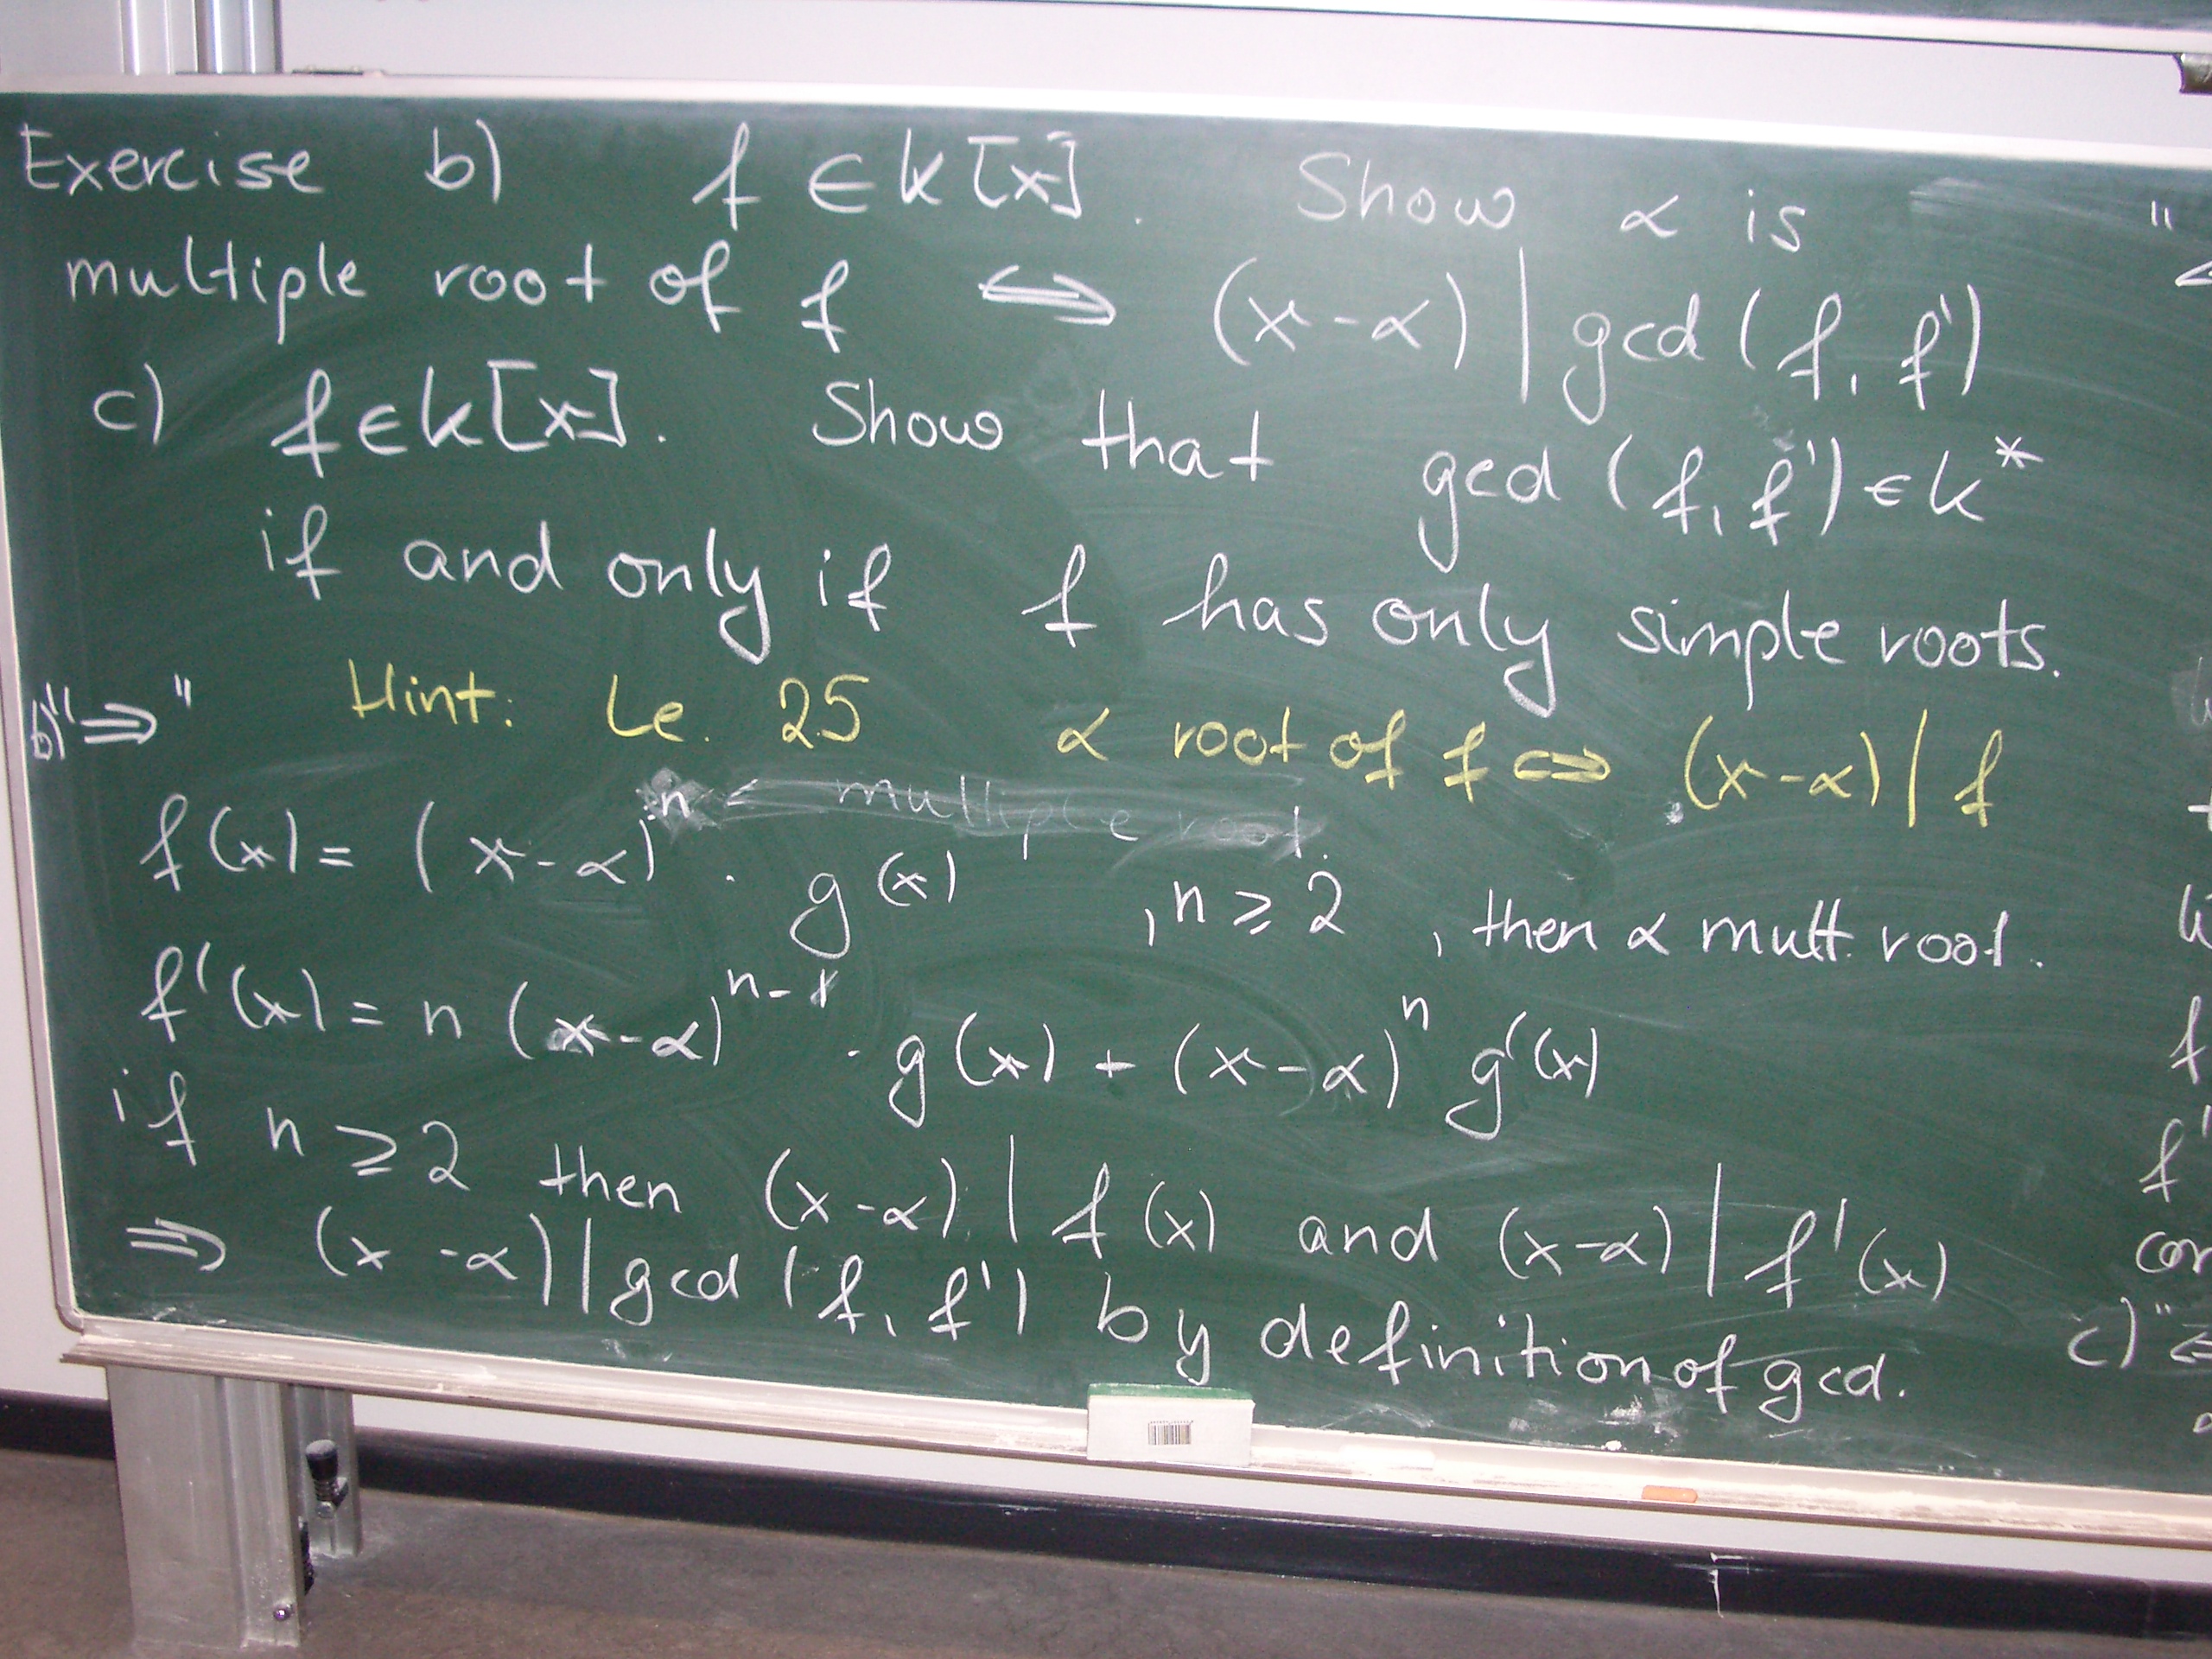 Exercise b) f ∈ k[x]. Show α is
multiple root of f ⇔ (x-α) | gcd(f, f')
c) f ∈ k[x]. Show that gcd(f, f') ∈ k*
if and only if f has only simple roots.
b) "⇒" Hint: Le. 25 α root of f ⇔ (x-α) | f
multiple root.
f(x) = (x-α)^n · g(x) , n ≥ 2 , then α mult. root.
f'(x) = n (x-α)^{n-1} · g(x) + (x-α)^n g'(x)
if n ≥ 2 then (x-α) | f(x) and (x-α) | f'(x)
⇒ (x-α) | gcd(f, f') by definition of gcd.
c) "